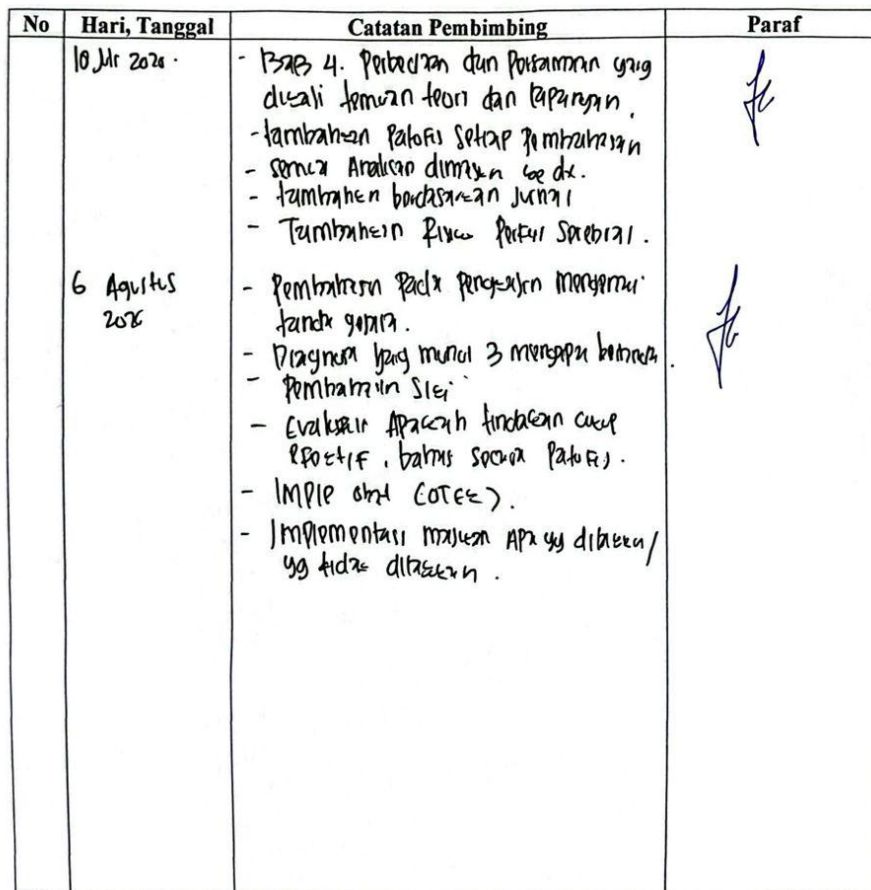 No Hari, Tanggal Catatan Pembimbing Paraf
10 2026. - BAB 4. Perbedaan dan Persamaan yang
temuan teori dan lapangan.
- tambahkan Patofis Setiap Pembahasan
- semua
- tambahkan berdasarkan Jurnal
- Tambahkan Risiko Perfusi Serebral.
6 Agustus - Pembahasan Pada Pengkajian mengenai
2026 tanda gejala.
- Diagnosa yang muncul 3 mengapa
- Pembahasan
- Evaluasi Apakah tindakan cukup
efektif, bahas secara Patofis.
- IMPLE (OTEK).
- Implementasi masukan Apa yg dilakukan/
yg tidak dilakukan.